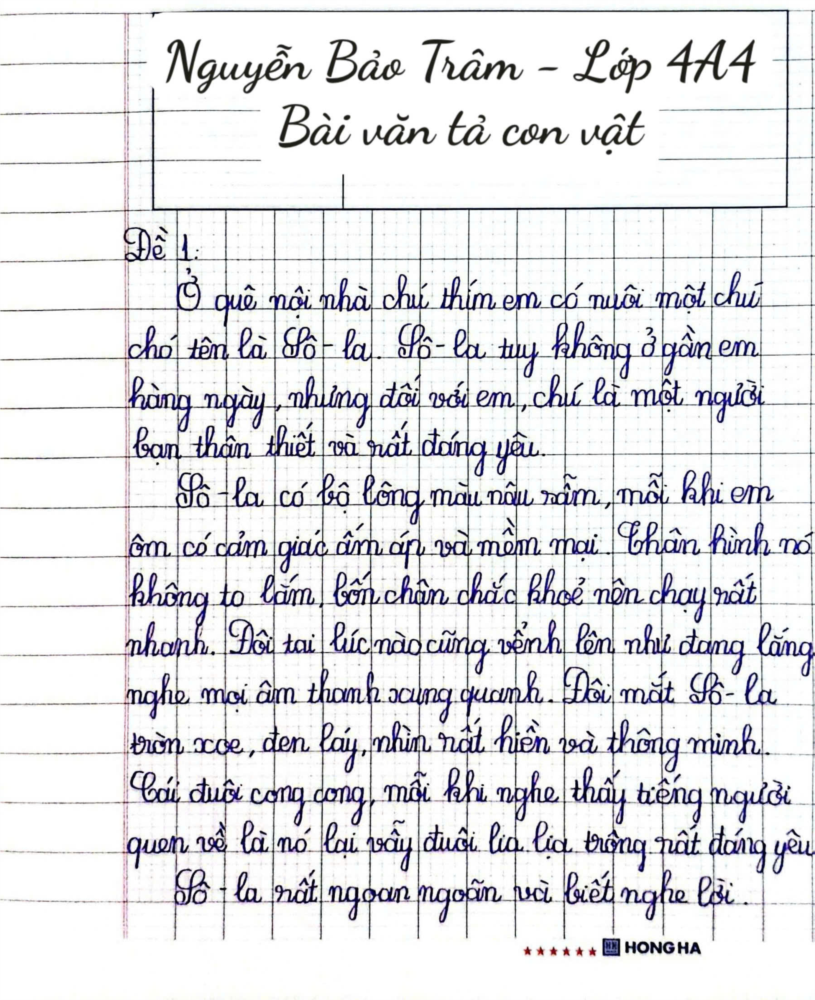 Nguyễn Bảo Trâm - Lớp 4A4
Bài văn tả con vật
Đề 1:
Ở quê nội nhà chú thím em có nuôi một chú
chó tên là Sô-la. Sô-la tuy không ở gần em
hàng ngày, nhưng đối với em, chú là một người
bạn thân thiết và rất đáng yêu.
Sô-la có bộ lông màu nâu sẫm, mỗi khi em
ôm có cảm giác ấm áp và mềm mại. Thân hình nó
không to lắm, bốn chân chắc khoẻ nên chạy rất
nhanh. Đôi tai lúc nào cũng vểnh lên như đang lắng
nghe mọi âm thanh xung quanh. Đôi mắt Sô-la
tròn xoe, đen láy, nhìn rất hiền và thông minh.
Cái đuôi cong cong, mỗi khi nghe thấy tiếng người
quen về là nó lại vẫy đuôi lia lịa trông rất đáng yêu
Sô-la rất ngoan ngoãn và biết nghe lời.
HONG HA